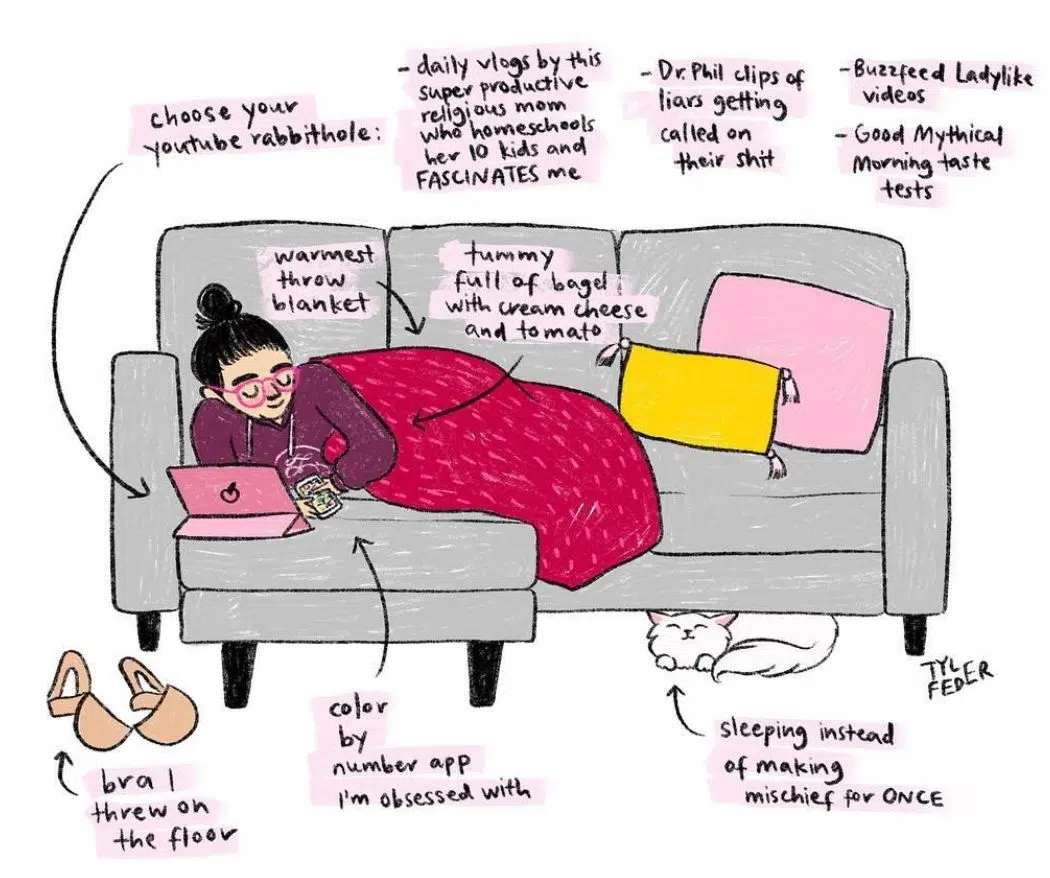 choose your
youtube rabbithole:
- daily vlogs by this
super productive
religious mom
who homeschools
her 10 kids and
FASCINATES me
- Dr. Phil clips of
liars getting
called on
their shit
- Buzzfeed Ladylike
videos
- Good Mythical
Morning taste
tests
warmest
throw
blanket
tummy
full of bagel
with cream cheese
and tomato
TYLER
FEDER
color
by
number app
I'm obsessed with
sleeping instead
of making
mischief for ONCE
bra I
threw on
the floor